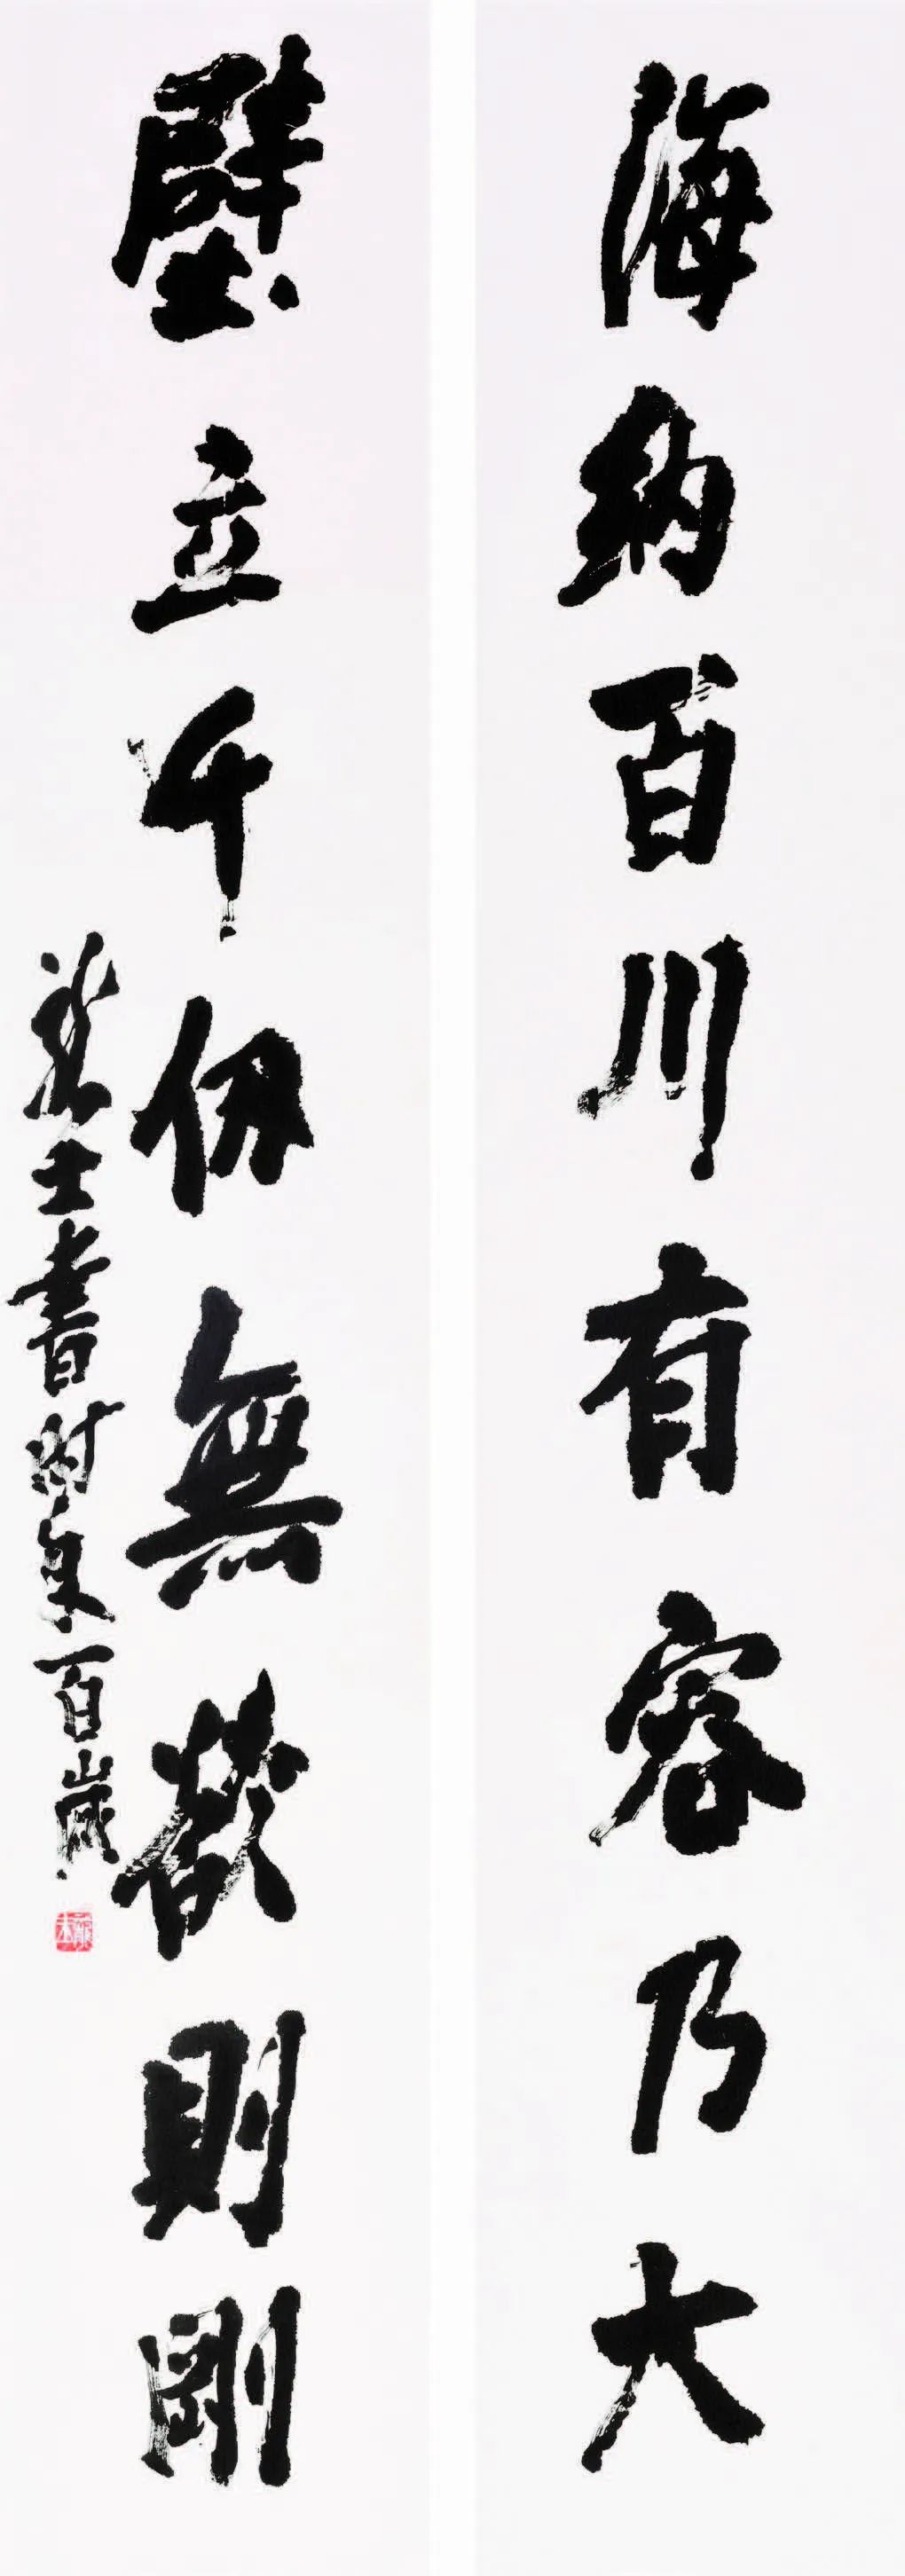 海納百川有容乃大
壁立千仞無欲則剛
士書時年百歲